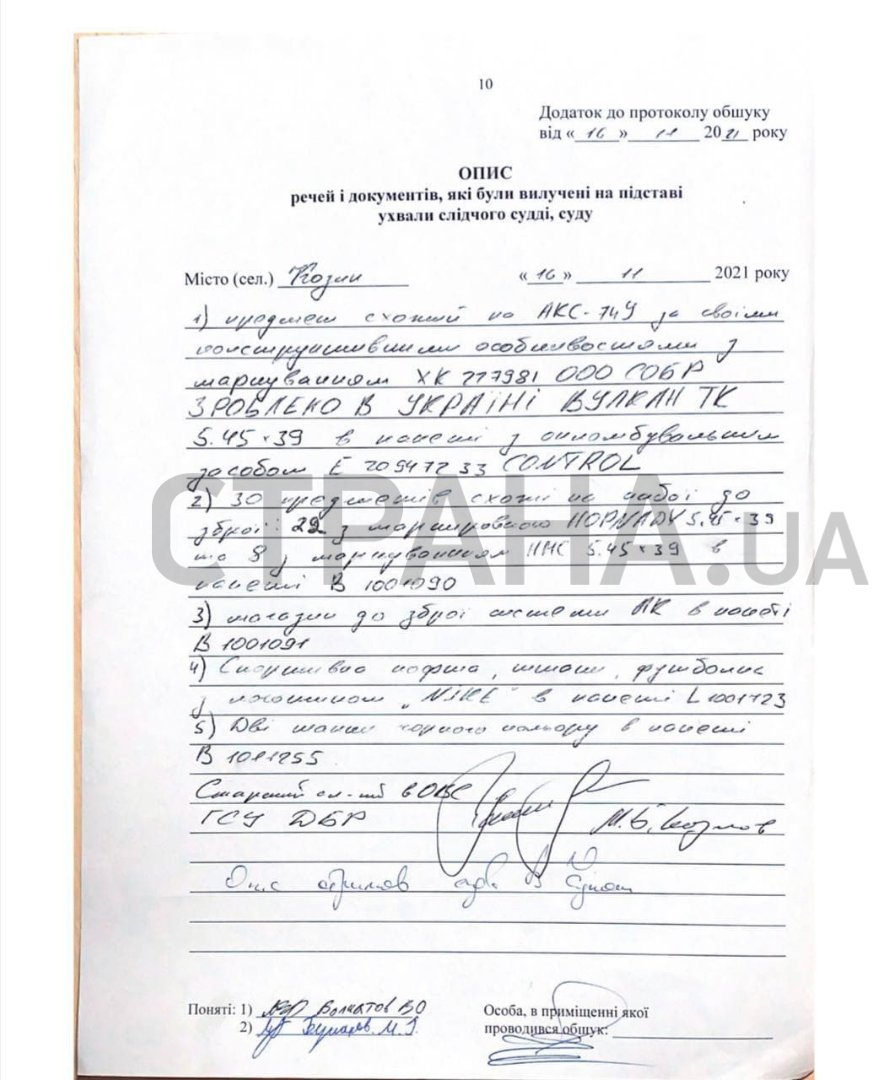 10
Додаток до протоколу обшуку
від «16» 11 2021 року
ОПИС
речей і документів, які були вилучені на підставі
ухвали слідчого судді, суду
Місто (сел.) Козин «16» 11 2021 року
1) предмет схожий на АКС-74У за своїми
конструктивними особливостями з
маркуванням ХК 277981 ООО СОБР
ЗРОБЛЕНО В УКРАЇНІ ВУЛКАН ТК
5.45×39 в пакеті з опломбувальним
засобом Е 20947233 CONTROL
2) 30 предметів схожі на набої до
зброї: 22 з маркировкою HORNADY 5.45×39
та 8 з маркуванням НМС 5.45×39 в
пакеті В 1001090
3) магазин до зброї системи АК в пакеті
В 1001091
4) Спортивна кофта, штани, футболка
з логотипом „NIKE" в пакеті L1001723
5) Дві шапки чорного кольору в пакеті
В 1011255
Старший сл-чий в ОВС
ГСУ ДБР М.Б.
Опис отримав адв. В
Поняті: 1) В О
2) М.
Особа, в приміщенні якої
проводився обшук:
СТРАНА.UA